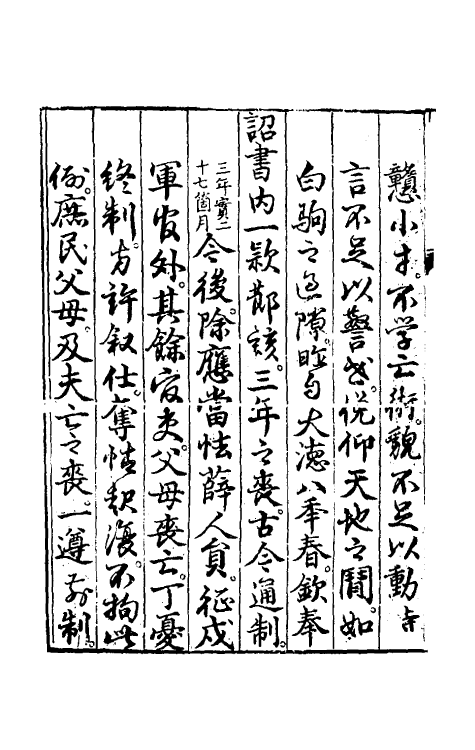 戇小才。不学亡術。貌不足以動寺
言不足以警世。俛仰天地之間。如
白驹之過隙。昨自大德八年春。欽奉
詔書内一款節該。三年之喪。古今通制。
三年實二十七箇月今後。除應當怯薛人員。征戍
軍官外。其餘官吏。父母喪亡。丁憂
终制。方許叙仕。奪情起復。不拘此
例。庶民父母及夫亡之喪。一遵前制。